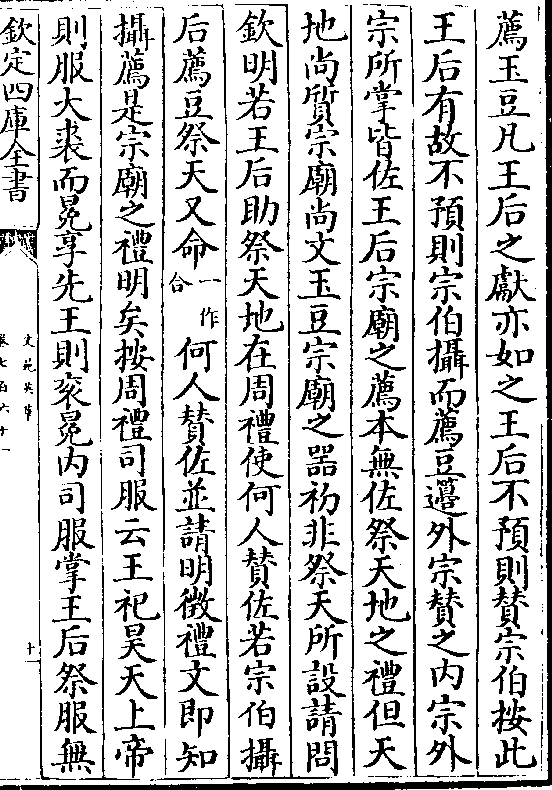 薦玉豆凡王后之獻亦如之王后不預則贊宗伯按此
王后有故不預則宗伯攝而薦豆籩外宗贊之内宗外
宗所掌皆佐王后宗廟之薦本無佐祭天地之禮但天
地尚質宗廟尚文玉豆宗廟之器初非祭天所設請問
欽明若王后助祭天地在周禮使何人贊佐若宗伯攝
后薦豆祭天又命一作合何人贊佐並請明徵禮文即知
攝薦是宗廟之禮明矣按周禮司服云王祀昊天上帝
則服大裘而冕享先王則衮冕内司服掌王后祭服無
欽定四庫全書
文苑英華
卷七百六十一
十一